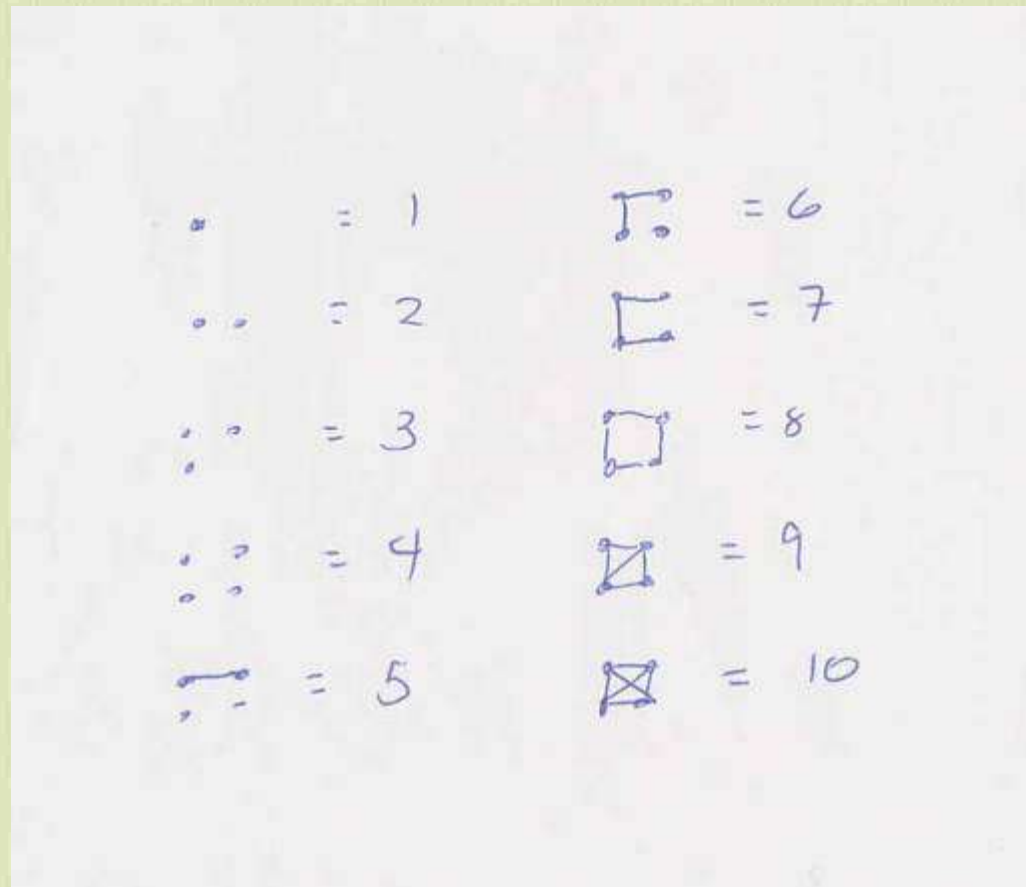 = 1
= 2
= 3
= 4
= 5
= 6
= 7
= 8
= 9
= 10